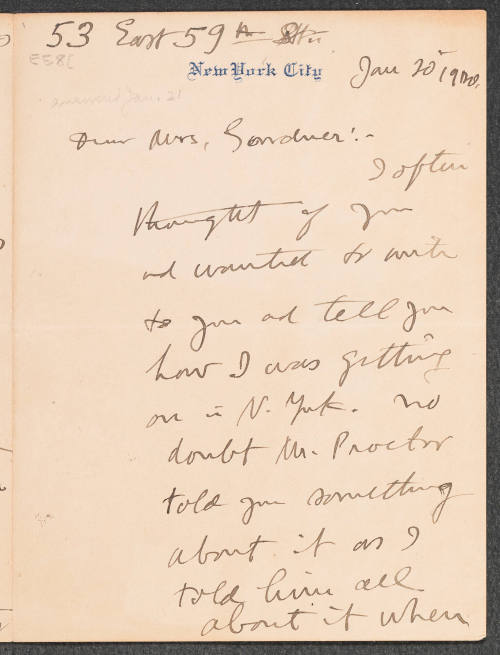 53 East 59th Str.
E58
New York City
Jan 20th
answered Jan. 21
Dear Mrs. Gardner:-
I often
thought of you
and wanted to write
to you and tell you
how I was getting
on in N. York. No
doubt Mr. Proctor
told you something
about it as I
told him all
about it when